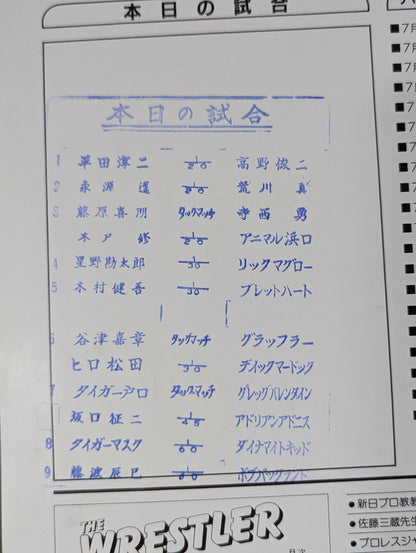 本日の試合
本日の試合
1 平田淳二 1/20 高野俊二
2 永源遙 1/20 荒川真
3 藤原喜明 タッグマッチ 寺西勇
木戸修 1/20 アニマル浜口
4 星野勘太郎 1/30 リックマグロー
5 木村健吾 1/30 ブレットハート
6 谷津嘉章 タッグマッチ グラップラー
ヒロ松田 1/30 ディックマードック
7 タイガー戸口 タッグマッチ グレッグバレンタイン
坂口征二 1/45 アドリアンアドニス
8 タイガーマスク 1/60 ダイナマイトキッド
9 藤波辰巳 1/60 ボブバックランド
THE WRESTLER
目次
■7月
■7月
■7月
■7月
●新日プロ教
●佐藤三蔵先生
●プロレスジャ